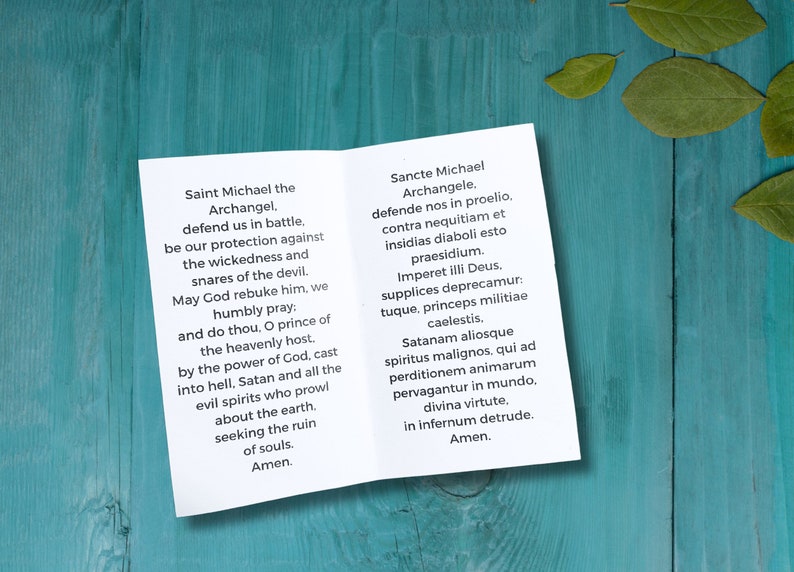 Saint Michael the
Archangel,
defend us in battle,
be our protection against
the wickedness and
snares of the devil.
May God rebuke him, we
humbly pray;
and do thou, O prince of
the heavenly host,
by the power of God, cast
into hell, Satan and all the
evil spirits who prowl
about the earth,
seeking the ruin
of souls.
Amen.
Sancte Michael
Archangele,
defende nos in proelio,
contra nequitiam et
insidias diaboli esto
praesidium.
Imperet illi Deus,
supplices deprecamur:
tuque, princeps militiae
caelestis,
Satanam aliosque
spiritus malignos, qui ad
perditionem animarum
pervagantur in mundo,
divina virtute,
in infernum detrude.
Amen.